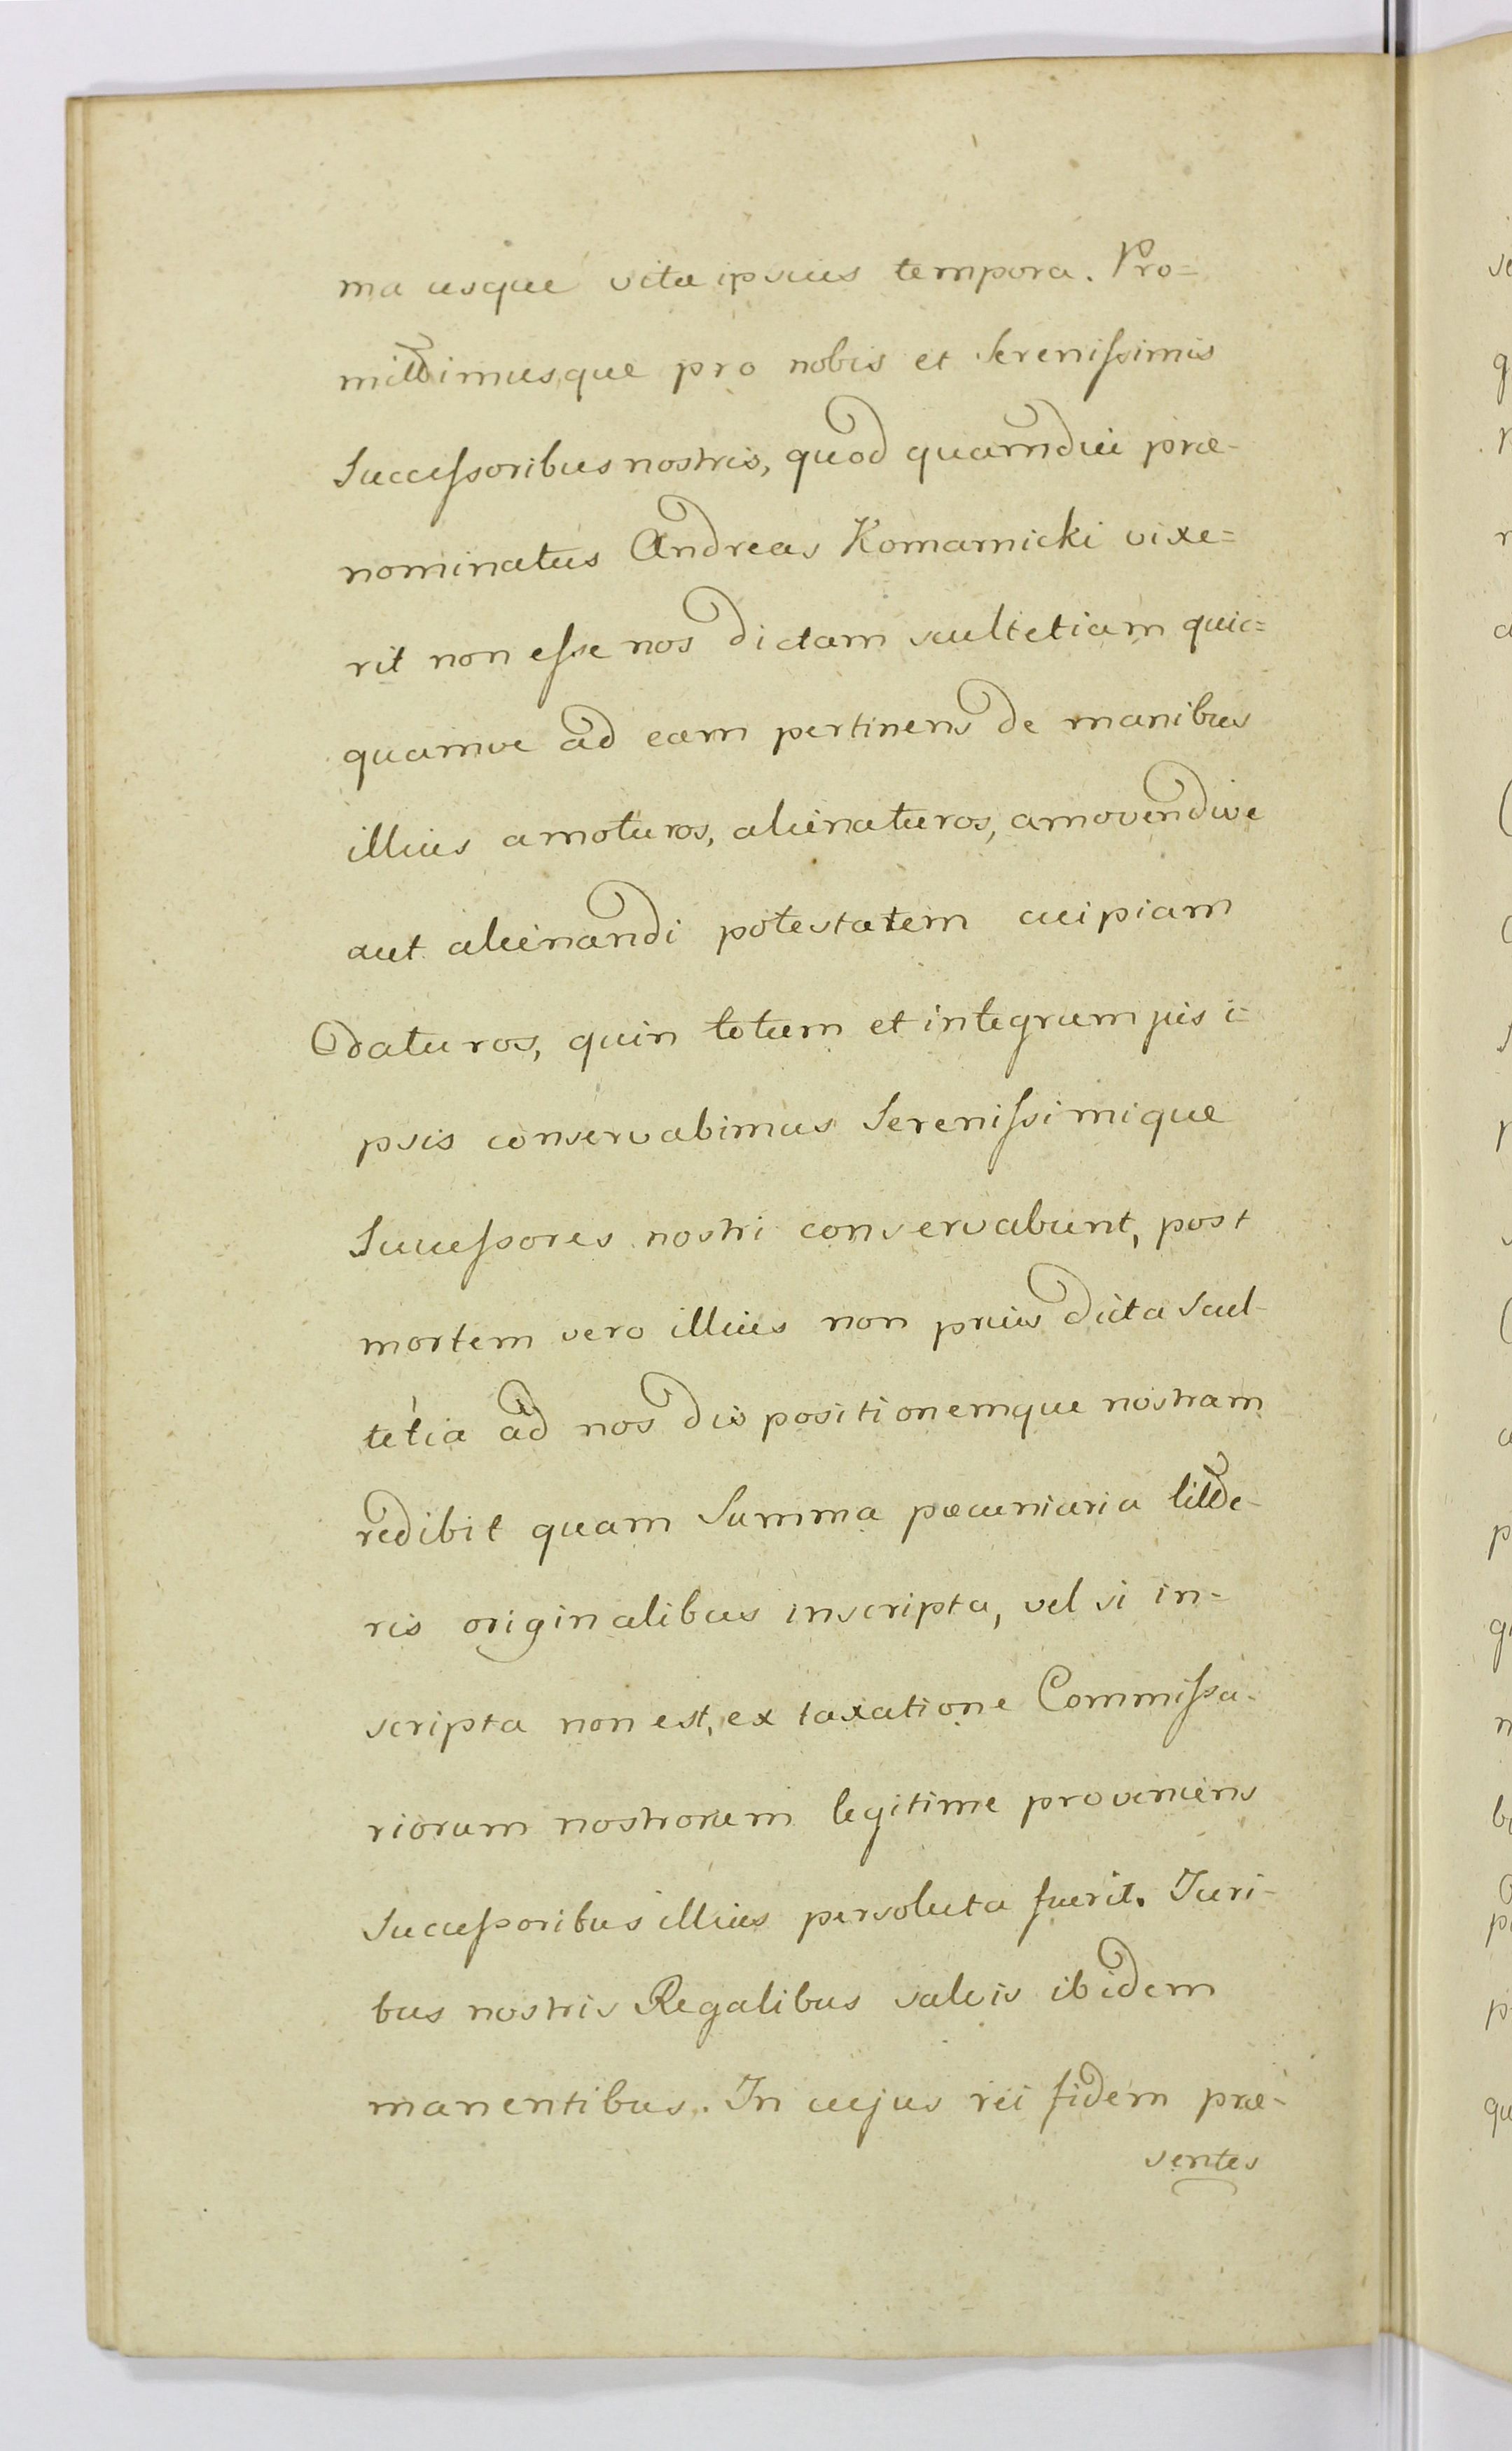 ma usque vita ipsius tempora. Pro=
mittimusque pro nobis et Serenißimis
Succeßoribus nostris, quod quamdui præ-
nominatus Andreas Komarnicki vixe=
rit non eße nos dictam scultetiam quic=
quamve ad eam pertinens de manibus
illius amoturos, alienaturos, amovendive
aut alienandi potestatem cuipiam
daturos, quin totum et integrum jus i=
psis conservabimus Serenißimique
Succeßores nostri conservabunt, post
mortem vero illius non prius dicta Scul-
tetia ad nos dispositionemque nostram
redibit quam Summa pæcuniaria litte-
ris originalibus inscripta, vel si in-
scripta non est, ex taxatione Commißa-
riorum nostrorum legitime proveniens
Succeßoribus illius persoluta fuerit. Juri-
bus nostris Regalibus salvis ibidem
manentibus. In cujus rei fidem præ-
sentes